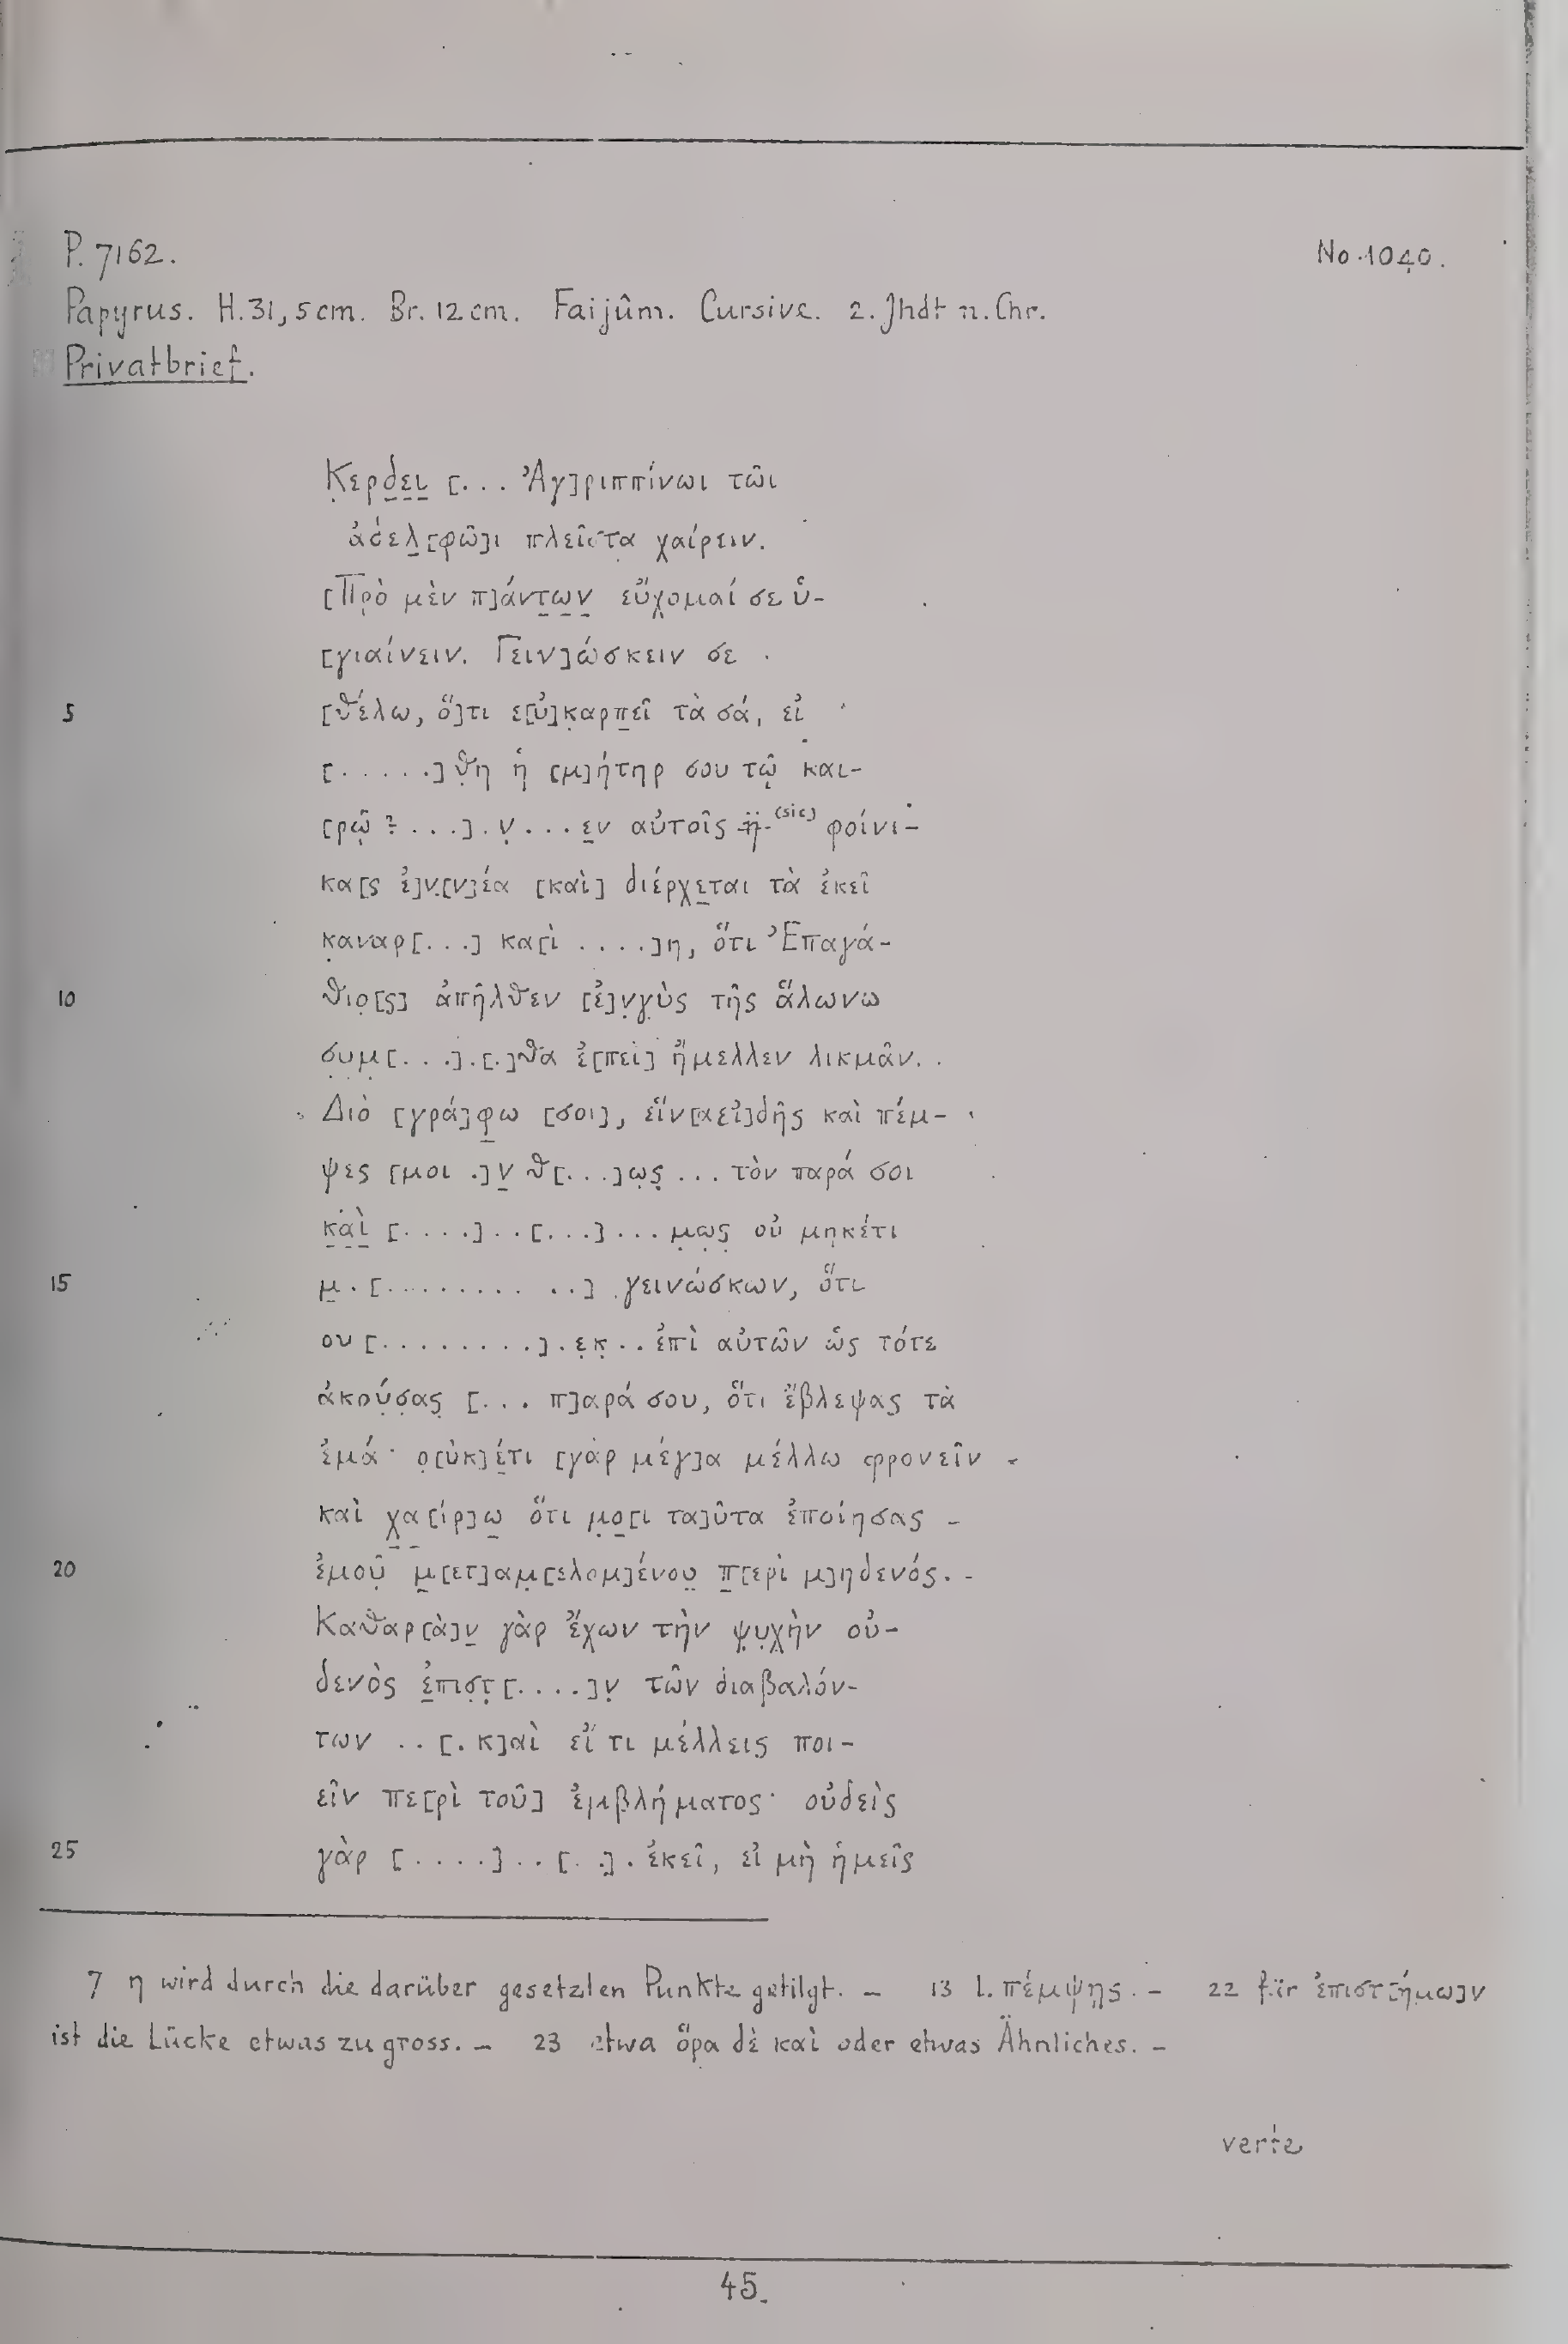 P. 7162.
No. 1040.
Papyrus. H. 31,5 cm. Br. 12 cm. Faijûm. Cursive. 2. Jhdt n. Chr.
Privatbrief.
Κερδει [... Ἀγ]ριππίνωι τῶι
ἀδελ[φῶ]ι πλεῖστα χαίρειν.
[Πρὸ μὲν π]άντων εὔχομαί σε ὑ-
[γιαίνειν. Γειν]ώσκειν σε
5 [θέλω, ὅ]τι ε[ὐ]καρπεῖ τὰ σά, εἰ
[.....]θη ἡ [μ]ήτηρ σου τῷ και-
[ρῷ ? ...].ν...εν αὐτοῖς η (sic) φοίνι-
κα[ς ἐ]ν[ν]έα [καὶ] διέρχεται τὰ ἐκεῖ
καναρ[...] κα[ὶ ....]η, ὅτι Ἐπαγά-
10 θιο[ς] ἀπῆλθεν [ἐ]νγὺς τῆς ἅλωνω
συμ[...].[.]θα ἐ[πεὶ] ἤμελλεν λικμᾶν.
Διὸ [γρά]φω [σοι], εἵν[α εἰ]δῆς καὶ πέμ-
ψες [μοι .]ν θ[...]ως ... τὸν παρά σοι
καὶ [....]..[...]...μως οὐ μηκέτι
15 μ.[........ ..] γεινώσκων, ὅτι
ου[.........].εκ..ἐπὶ αὐτῶν ὡς τότε
ἀκούσας [... π]αρά σου, ὅτι ἔβλεψας τὰ
ἐμά· ο[ὐκ]έτι [γὰρ μέγ]α μέλλω φρονεῖν
καὶ χα[ίρ]ω ὅτι μο[ι τα]ῦτα ἐποίησας
20 ἐμοῦ μ[ετ]αμ[ελομ]ένου π[ερὶ μ]ηδενός.
Καθαρ[ὰ]ν γὰρ ἔχων τὴν ψυχὴν οὐ-
δενὸς ἐπιστ[....]ν τῶν διαβαλόν-
των ..[. κ]αὶ εἴ τι μέλλεις ποι-
εῖν πε[ρὶ τοῦ] ἐμβλήματος· οὐδεὶς
25 γὰρ [....]..[..].ἐκεῖ, εἰ μὴ ἡμεῖς
7 η wird durch die darüber gesetzten Punkte getilgt. – 13 l. πέμψης. – 22 für ἐπιστ[ήμω]ν
ist die Lücke etwas zu gross. – 23 etwa ὅρα δὲ καὶ oder etwas Ähnliches. –
verte
45.